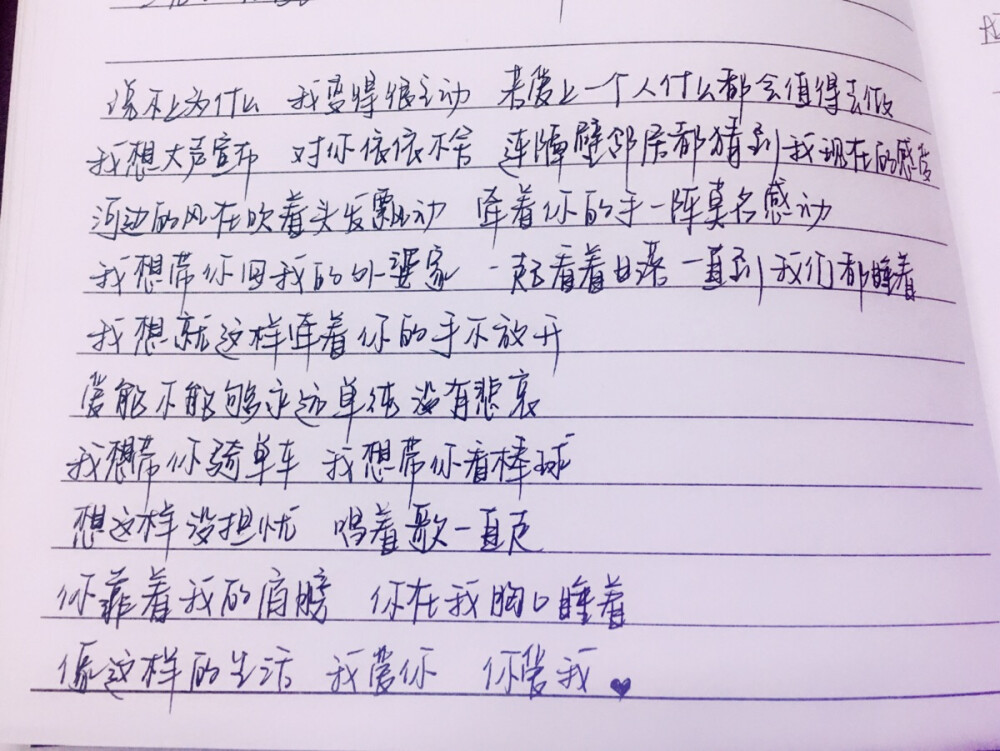 说不上为什么 我变得很主动 若爱上一个人什么都会值得去做
我想大声宣布 对你依依不舍 连隔壁邻居都猜到我现在的感受
河边的风在吹着头发飘动 牵着你的手一阵莫名感动
我想带你回我的外婆家 一起看着日落 一直到我们都睡着
我想就这样牵着你的手不放开
爱能不能够永远单纯没有悲哀
我想带你骑单车 我想带你看棒球
想这样没担忧 唱着歌一直走
你靠着我的肩膀 你在我胸口睡着
像这样的生活 我爱你 你爱我